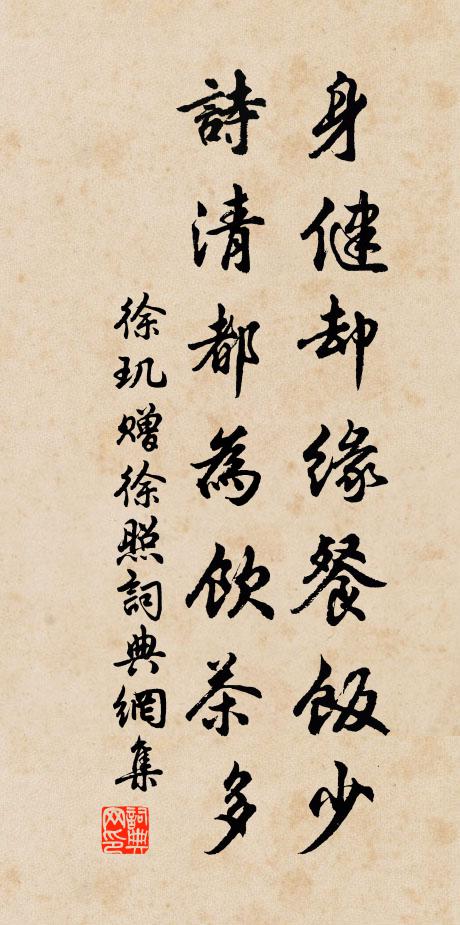 身健却緣餐飯少
詩清都為飲茶多
徐玑赠徐照詞典網集
詞典網印